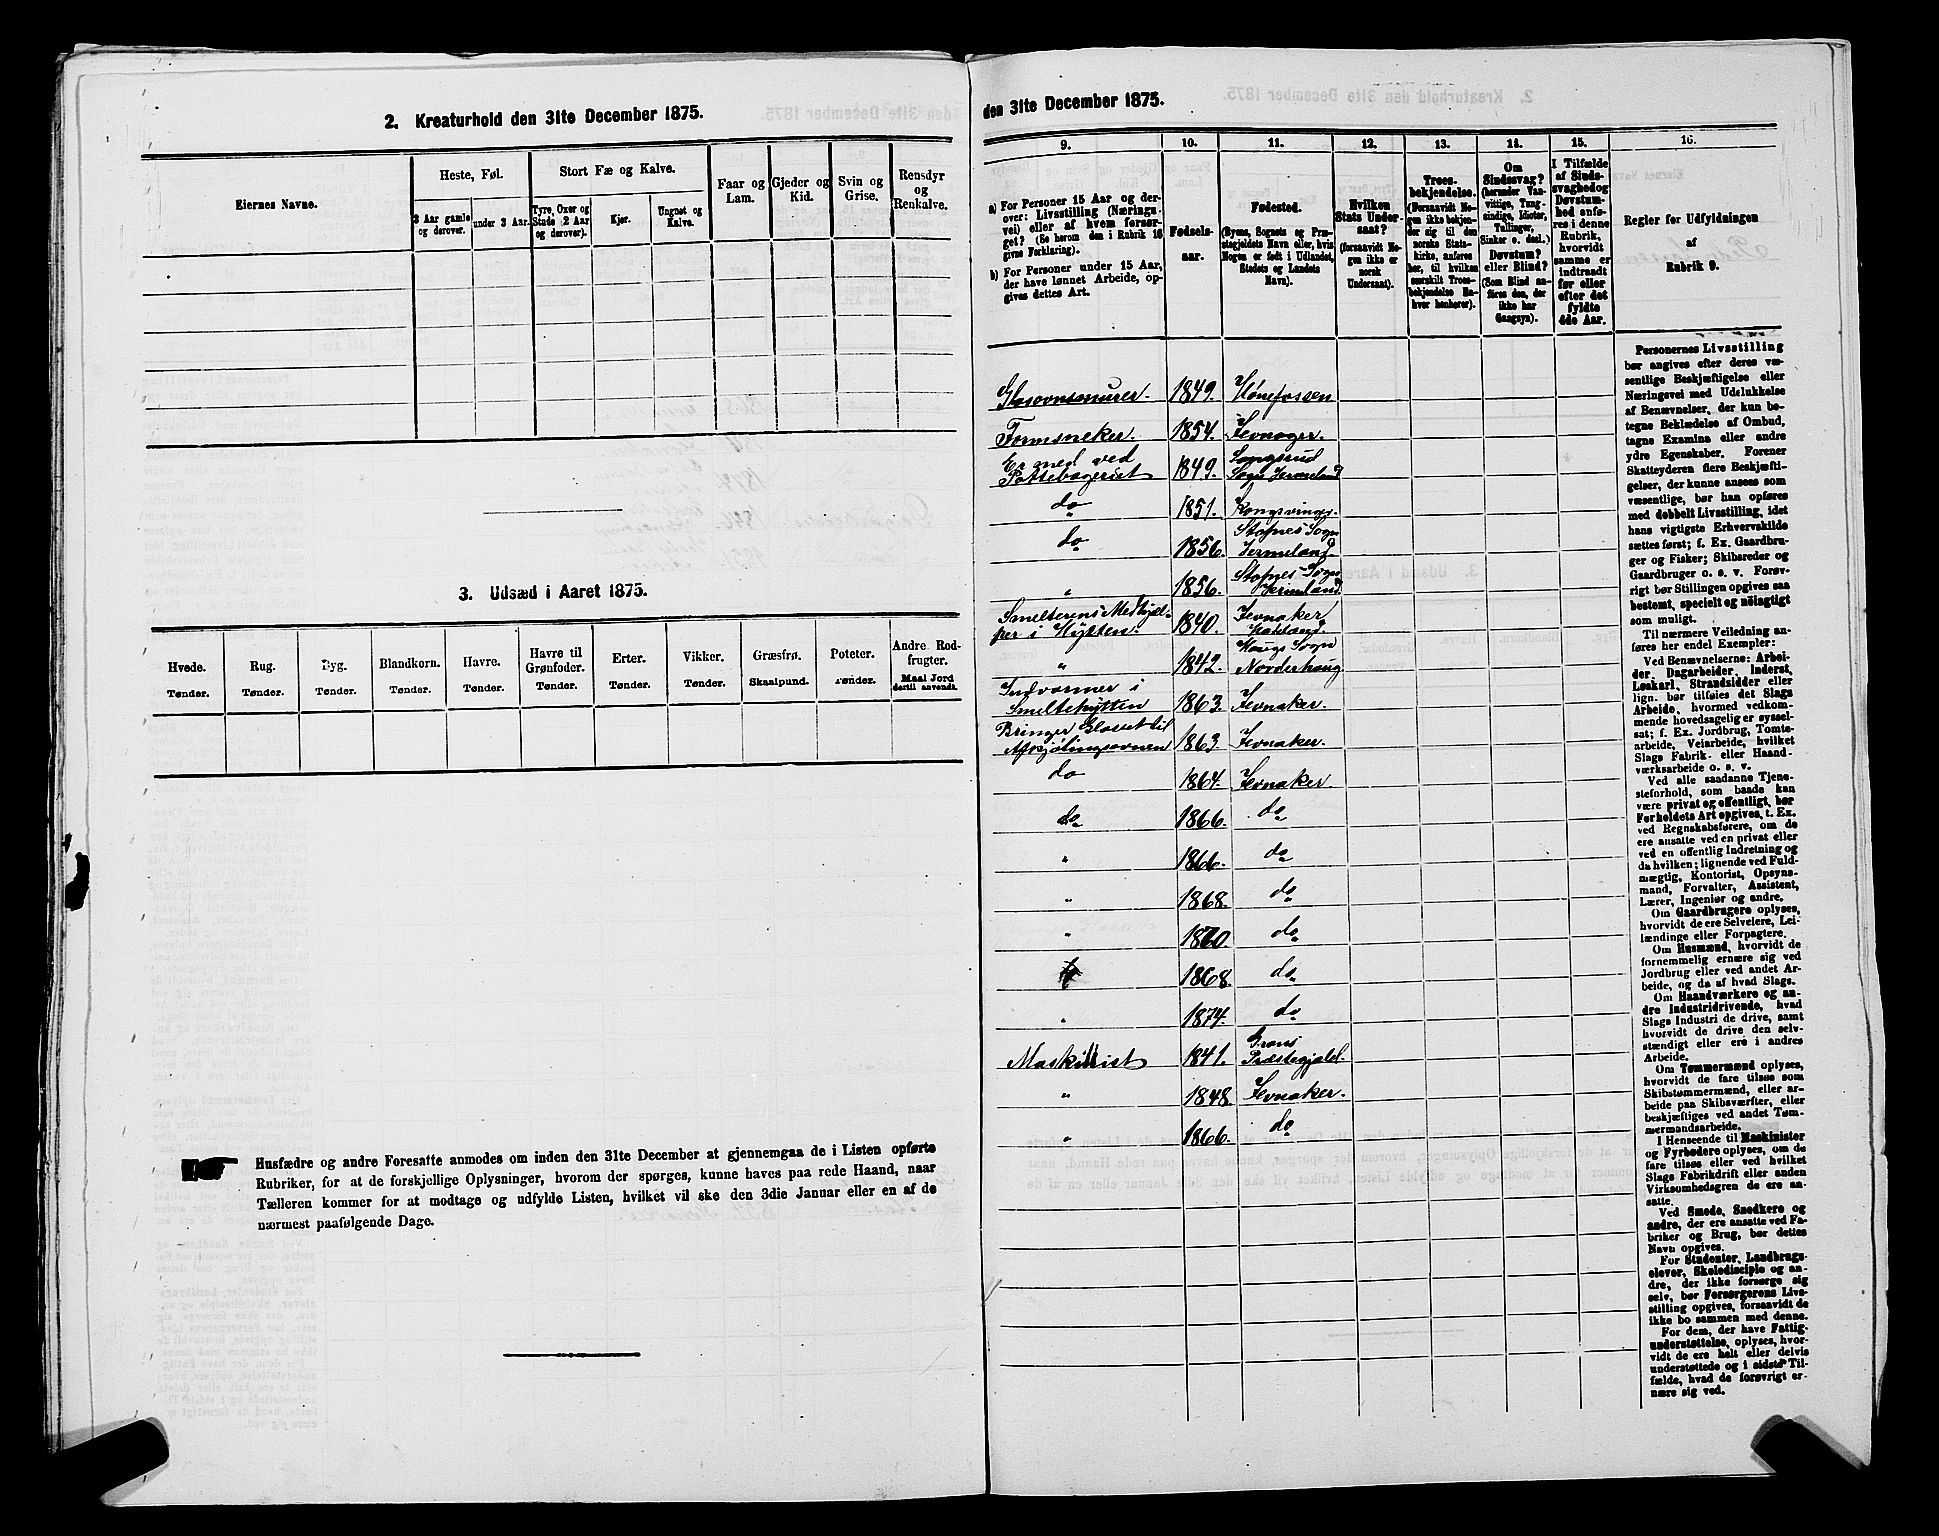 2. Kreaturhold den 31te December 1875.
Eiernes Navne.
Heste, Føl.
3 Aar gamle og derover.
under 3 Aar.
Stort Fæ og Kalve.
Tyre, Oxer og Stude 2 Aar og derover).
Kjør.
Ungnet og Kalve.
Faar og Lam.
Gjeder og Kid.
Svin og Grise.
Rensdyr og Renkalve.
3. Udsæd i Aaret 1875.
Hvede. Tønder.
Rug. Tønder.
Byg. Tønder.
Blandkorn. Tønder.
Havre. Tønder.
Havre til Grønfoder. Tønder.
Erter. Tønder.
Vikker. Tønder.
Græsfrø. Skaalpund.
Poteter. Tønder.
Andre Rodfrugter. Maal Jord dertil anvendt.
Husfædre og andre Foresatte anmodes om inden den 31te December at gjennemgaa de i Listen opførte
Rubriker, for at de forskjellige Oplysninger, hvorom der spørges, kunne haves paa rede Haand, naar
Tælleren kommer for at modtage og udfylde Listen, hvilket vil ske den 3die Januar eller en af de
nærmest paafølgende Dage.
den 31te December 1875.
9.
a) For Personer 15 Aar og derover: Livsstilling (Næringsvei) eller af hvem forsørget? (Se herom den i Rubrik 16 givne Forklaring).
b) For Personer under 15 Aar, der have lønnet Arbeide, opgives dettes Art.
10.
Fødselsaar.
11.
Fødested.
(Byens, Sognets og Præstegjeldets Navn eller, hvis Nogen er født i Udlandet, Stedets og Landets Navn).
12.
Hvilken Stats Undersaat?
(forsaavidt Nogen ikke er norsk Undersaat).
13.
Troesbekjendelse.
(Forsaavidt Nogen ikke bekjender sig til den norske Statskirke, anføres her, til hvilken særskilt Troesbekjendelse Enhver henhører).
14.
Om Sindssvag?
(herunder Vanvittige, Tungsindige, Idioter, Tullinger, Sinker o. desl.)
Døvstum? eller Blind?
(Som Blind anføres den, der ikke har Gangsyn).
15.
I Tilfælde af Sindssvaghed og Døvstumhed anføres i denne Rubrik, hvorvidt samme er indtraadt før eller efter det fyldte 4de Aar.
16.
Regler for Udfyldningen
af
Rubrik 9.
Glasovnsmurer. 1849. Hønefossen
Formsneker. 1854. Jevnager.
Er med ved Pottebageriet 1849. Sogn Vermeland
do 1851. Kongsvinger.
do 1856. Stafnes Sogn Vermeland
" 1856. Stafnes Sogn Vermeland
Smelterens Medhjælper i Hytten. 1840. Jevnaker Hadeland.
" 1842. Haugs Sogn Norderhaug
Indvarmer i Smeltehytten 1863. Jevnaker.
Bringer Glasset til Afkjølingsovnen 1863. Jevnaker.
do 1864. Jevnaker.
do 1866. do
" 1866. do
" 1868. do
" 1870. do
1868. do
" 1874. do
Maskinist 1841. Grans Præstegjeld.
" 1848. Jevnaker.
" 1866. do
Personernes Livsstilling
bør angives efter deres væ-
sentlige Beskjæftigelse eller
Næringsvei med Udelukkelse
af Benævnelser, der kun be-
tegne Beklædelse af Ombud,
tagne Examina eller andre
ydre Egenskaber. Forener
Skatteyderen flere Beskjæfti-
gelser, der kunne ansees som
væsentlige, bør han opføres
med dobbelt Livsstilling, idet
hans vigtigste Erhvervskilde
sættes først; f. Ex. Gaardbru-
ger og Fisker; Skibsreder og
Gaardbruger o. s. v. Forøv-
rigt bør Stillingen opgives saa
bestemt, specielt og nøiagtigt
som muligt.
Til nærmere Veiledning an-
føres her endel Exempler:
Ved Benævnelserne: Arbei-
der, Dagarbeider, Inderst,
Løskarl, Strandsidder eller
lign. bør tilføies det Slags
Arbeide, hvormed vedkom-
mende hovedsagelig er syssel-
sat; f. Ex. Jordbrug, Tomte-
arbeide, Veiarbeide, hvilket
Slags Fabrik- eller Haand-
værksarbeide o. s. v.
Ved alle saadanne Tjene-
steforhold, som baade kan
være privat og offentligt, bør
Forholdets Art opgives, t. Ex.
ved Regnskabsførere, om de
ere ansatte ved en privat eller
ved en offentlig Indretning og
da hvilken; lignende ved Fuld-
mægtig, Kontorist, Opsyns-
mand, Forvalter, Assistent,
Lærer, Ingeniør og andre.
Om Gaardbrugere oplyses,
hvorvidt de ere Selveiere, Lei-
lændinge eller Forpagtere.
Om Husmænd, hvorvidt de
fornemmelig ernære sig ved
Jordbrug eller ved andet Ar-
beide, og da af hvad Slags.
Om Haandværkere og an-
dre Industridrivende, hvad
Slags Industri de drive, samt
hvorvidt de drive den selv-
stændigt eller ere i andres
Arbeide.
Om Tømmermænd oplyses,
hvorvidt de fare tilsøs som
Skibstømmermænd, eller ar-
beide paa Skibsværfter, eller
beskjæftiges ved andet Tøm-
mermandsarbeide.
I Henseende til Maskinister
og Fyrbødere oplyses, om de
fare tilsøs eller ved hvilket
Slags Fabrikdrift eller anden
Virksomhedsgren de ere an-
satte.
Ved Smede, Snedkere og
andre, der ere ansatte ved Fa-
briker og Brug, bør dettes
Navn opgives.
For Studenter, Landbrugs-
elever, Skoledisciple og an-
dre, der ikke forsørge sig
selv, bør Forsørgerens Livs-
stilling opgives, forsaavidt de
ikke bo sammen med denne.
For dem, der have Fattig-
understøttelse, oplyses, hvor-
vidt de ere helt eller delvis
understøttede og i sidste Til-
fælde, hvad de forøvrigt er-
nære sig ved.